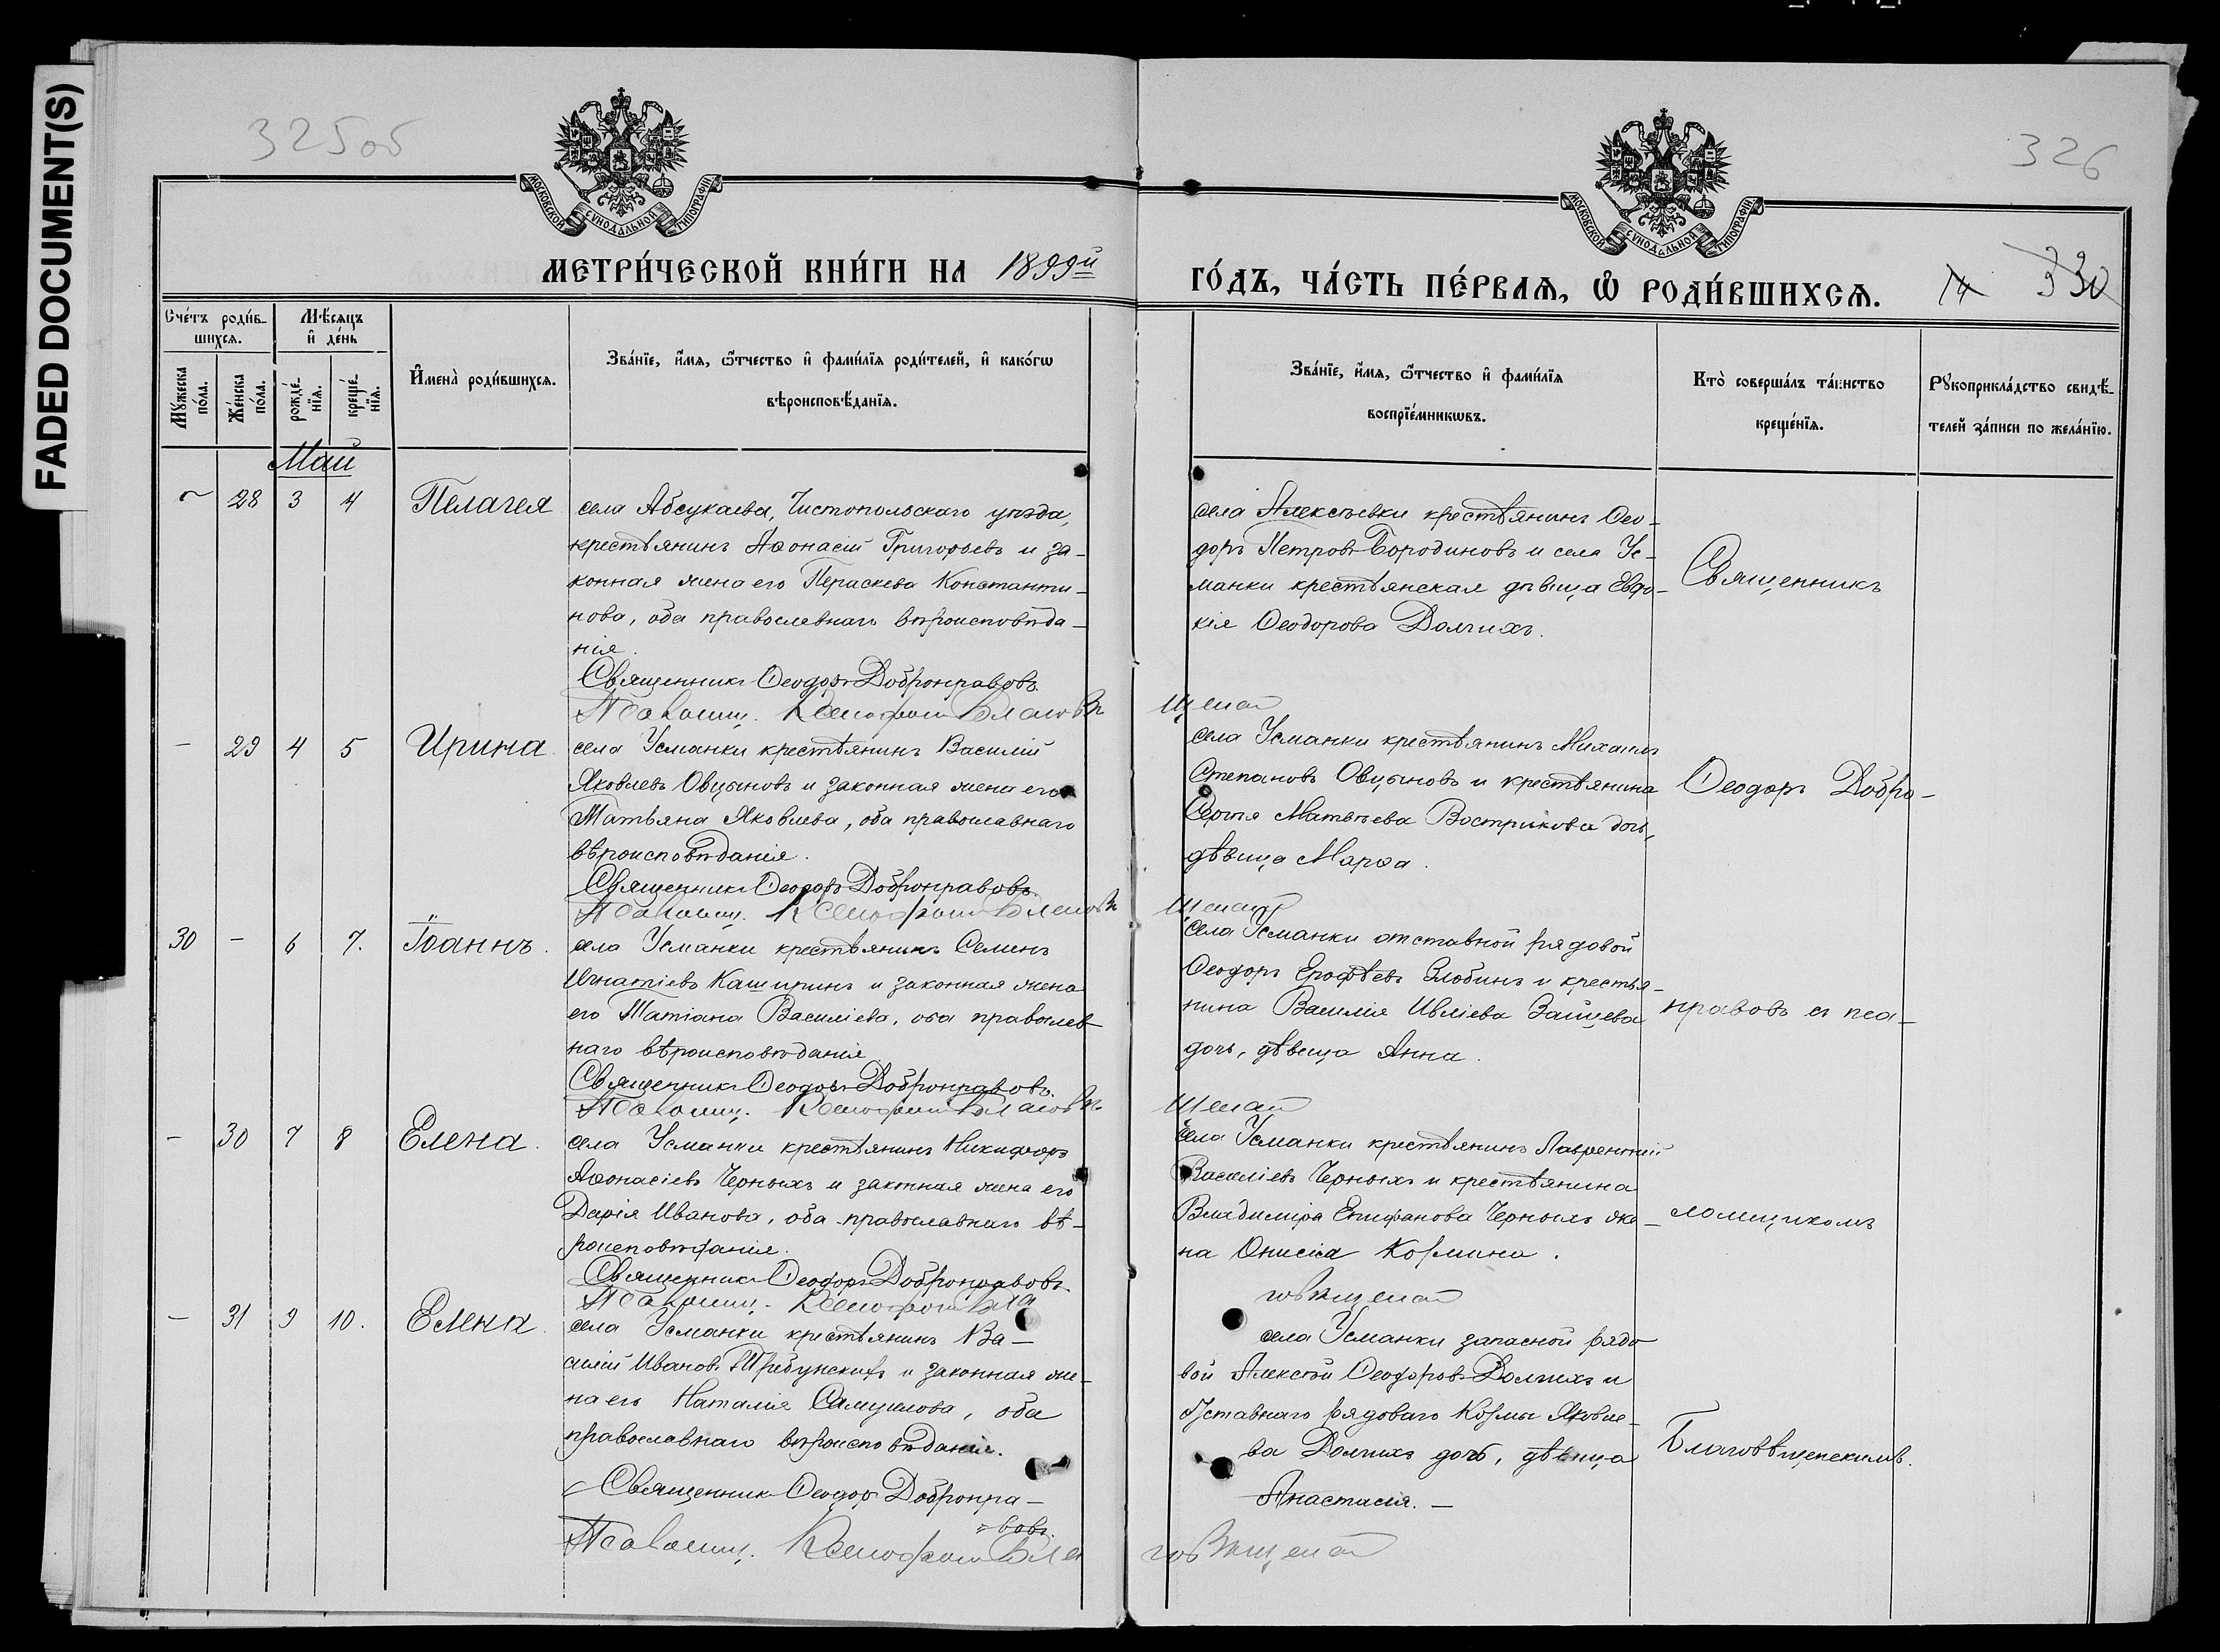 FADED DOCUMENT(S)
325об
326
МОСКОВСКОЙ СУНОДАЛЬНОЙ ТИПОГРАФІИ
МОСКОВСКОЙ СУНОДАЛЬНОЙ ТИПОГРАФІИ
МЕТРИ́ЧЕСКОЙ КНИ́ГИ НА 1899й
ГО́ДЪ, ЧА́СТЬ ПЕ́РВАѦ, Ѡ҆ РОДИ́ВШИХСѦ.
14 330
Сче́тъ роди́в-
шихсѧ.
Мѣ́сѧцъ
и҆ де́нь
Мꙋ́жеска
по́ла.
Же́нска
по́ла.
рожде́-
нїѧ.
креще́-
нїѧ.
И҆мена̀ роди́вшихсѧ.
Зва́нїе, и҆́мѧ, ѻ҆́тчество и҆ фами́лїѧ роди́телей, и҆ како́гѡ
вѣроисповѣ́данїѧ.
Зва́нїе, и҆́мѧ, ѻ҆́тчество и҆ фами́лїѧ
воспрїе́мникѡвъ.
Кто̀ соверша́лъ та́инство
креще́нїѧ.
Рꙋкоприкла́дство свидѣ́-
телей за́писи по жела́нїю.
Май
~ 28 3 4 Пелагея
села Абсукаева, Чистопольскаго уѣзда,
крестьянинъ Аѳонасій Григорьевъ и за-
конная жена его Параскева Константи-
нова, оба православнаго вѣроисповѣда-
нія.
Священникъ Ѳеодоръ Добронравовъ.
Псаломщ. Ксенофонт Благовѣ
села Алексѣевки крестьянинъ Ѳео-
доръ Петровъ Бородиновъ и села Ус-
манки крестьянская дѣвица Евдо-
кія Ѳеодорова Долгихъ.
щенскій
Священникъ
- 29 4 5 Ирина
села Усманки крестьянинъ Василій
Яковлевъ Овцыновъ и законная жена его
Татьяна Яковлева, оба православнаго
вѣроисповѣданія.
Священникъ Ѳеодоръ Добронравовъ.
Псаломщ. Ксенофонт Благовѣ
села Усманки крестьянинъ Михаилъ
Степановъ Овцыновъ и крестьянина
Сергѣя Матвѣева Вострикова дочь,
дѣвица Марѳа.
щенскій
Ѳеодоръ Добро-
30 - 6 7. Іоаннъ.
села Усманки крестьянинъ Семенъ
Игнатіевъ Каширинъ и законная жена
его Татіана Василіева, оба православ-
наго вѣроисповѣданія
Священникъ Ѳеодоръ Добронравовъ.
Псаломщ. Ксенофонт Благовѣ
села Усманки отставной рядовой
Ѳеодоръ Ерофѣевъ Злобинъ и крестья-
нина Василія Ивліева Зайцева
дочь, дѣвица Анна.
щенскій
нравовъ съ пса-
- 30 7 8 Елена.
села Усманки крестьянинъ Никифоръ
Аѳонасіевъ Черныхъ и законная жена его
Дарія Иванова, оба православнаго вѣ-
роисповѣданія.
Священникъ Ѳеодоръ Добронравовъ
Псаломщ. Ксенофонт Бла
села Усманки крестьянинъ Лаврентій
Василіевъ Черныхъ и крестьянина
Владиміра Епифанова Черныхъ же-
на Онисія Козмина.
говѣщенскій
ломщикомъ
- 31 9 10. Елена.
села Усманки крестьянинъ Ва-
силій Ивановъ Трибунскихъ и законная же-
на его Наталія Самуилова, оба
православнаго вѣроисповѣданія.
Священникъ Ѳеодоръ Добронра-
=вовъ.
Псаломщ. Ксенофонт Бла
села Усманки запасной рядо
вой Алексѣй Ѳеодоровъ Долгихъ и
отставнаго рядоваго Козмы Яковле-
ва Долгихъ дочь, дѣвица
Анастасія. —
говѣщенскій
Благовѣщенскимъ.